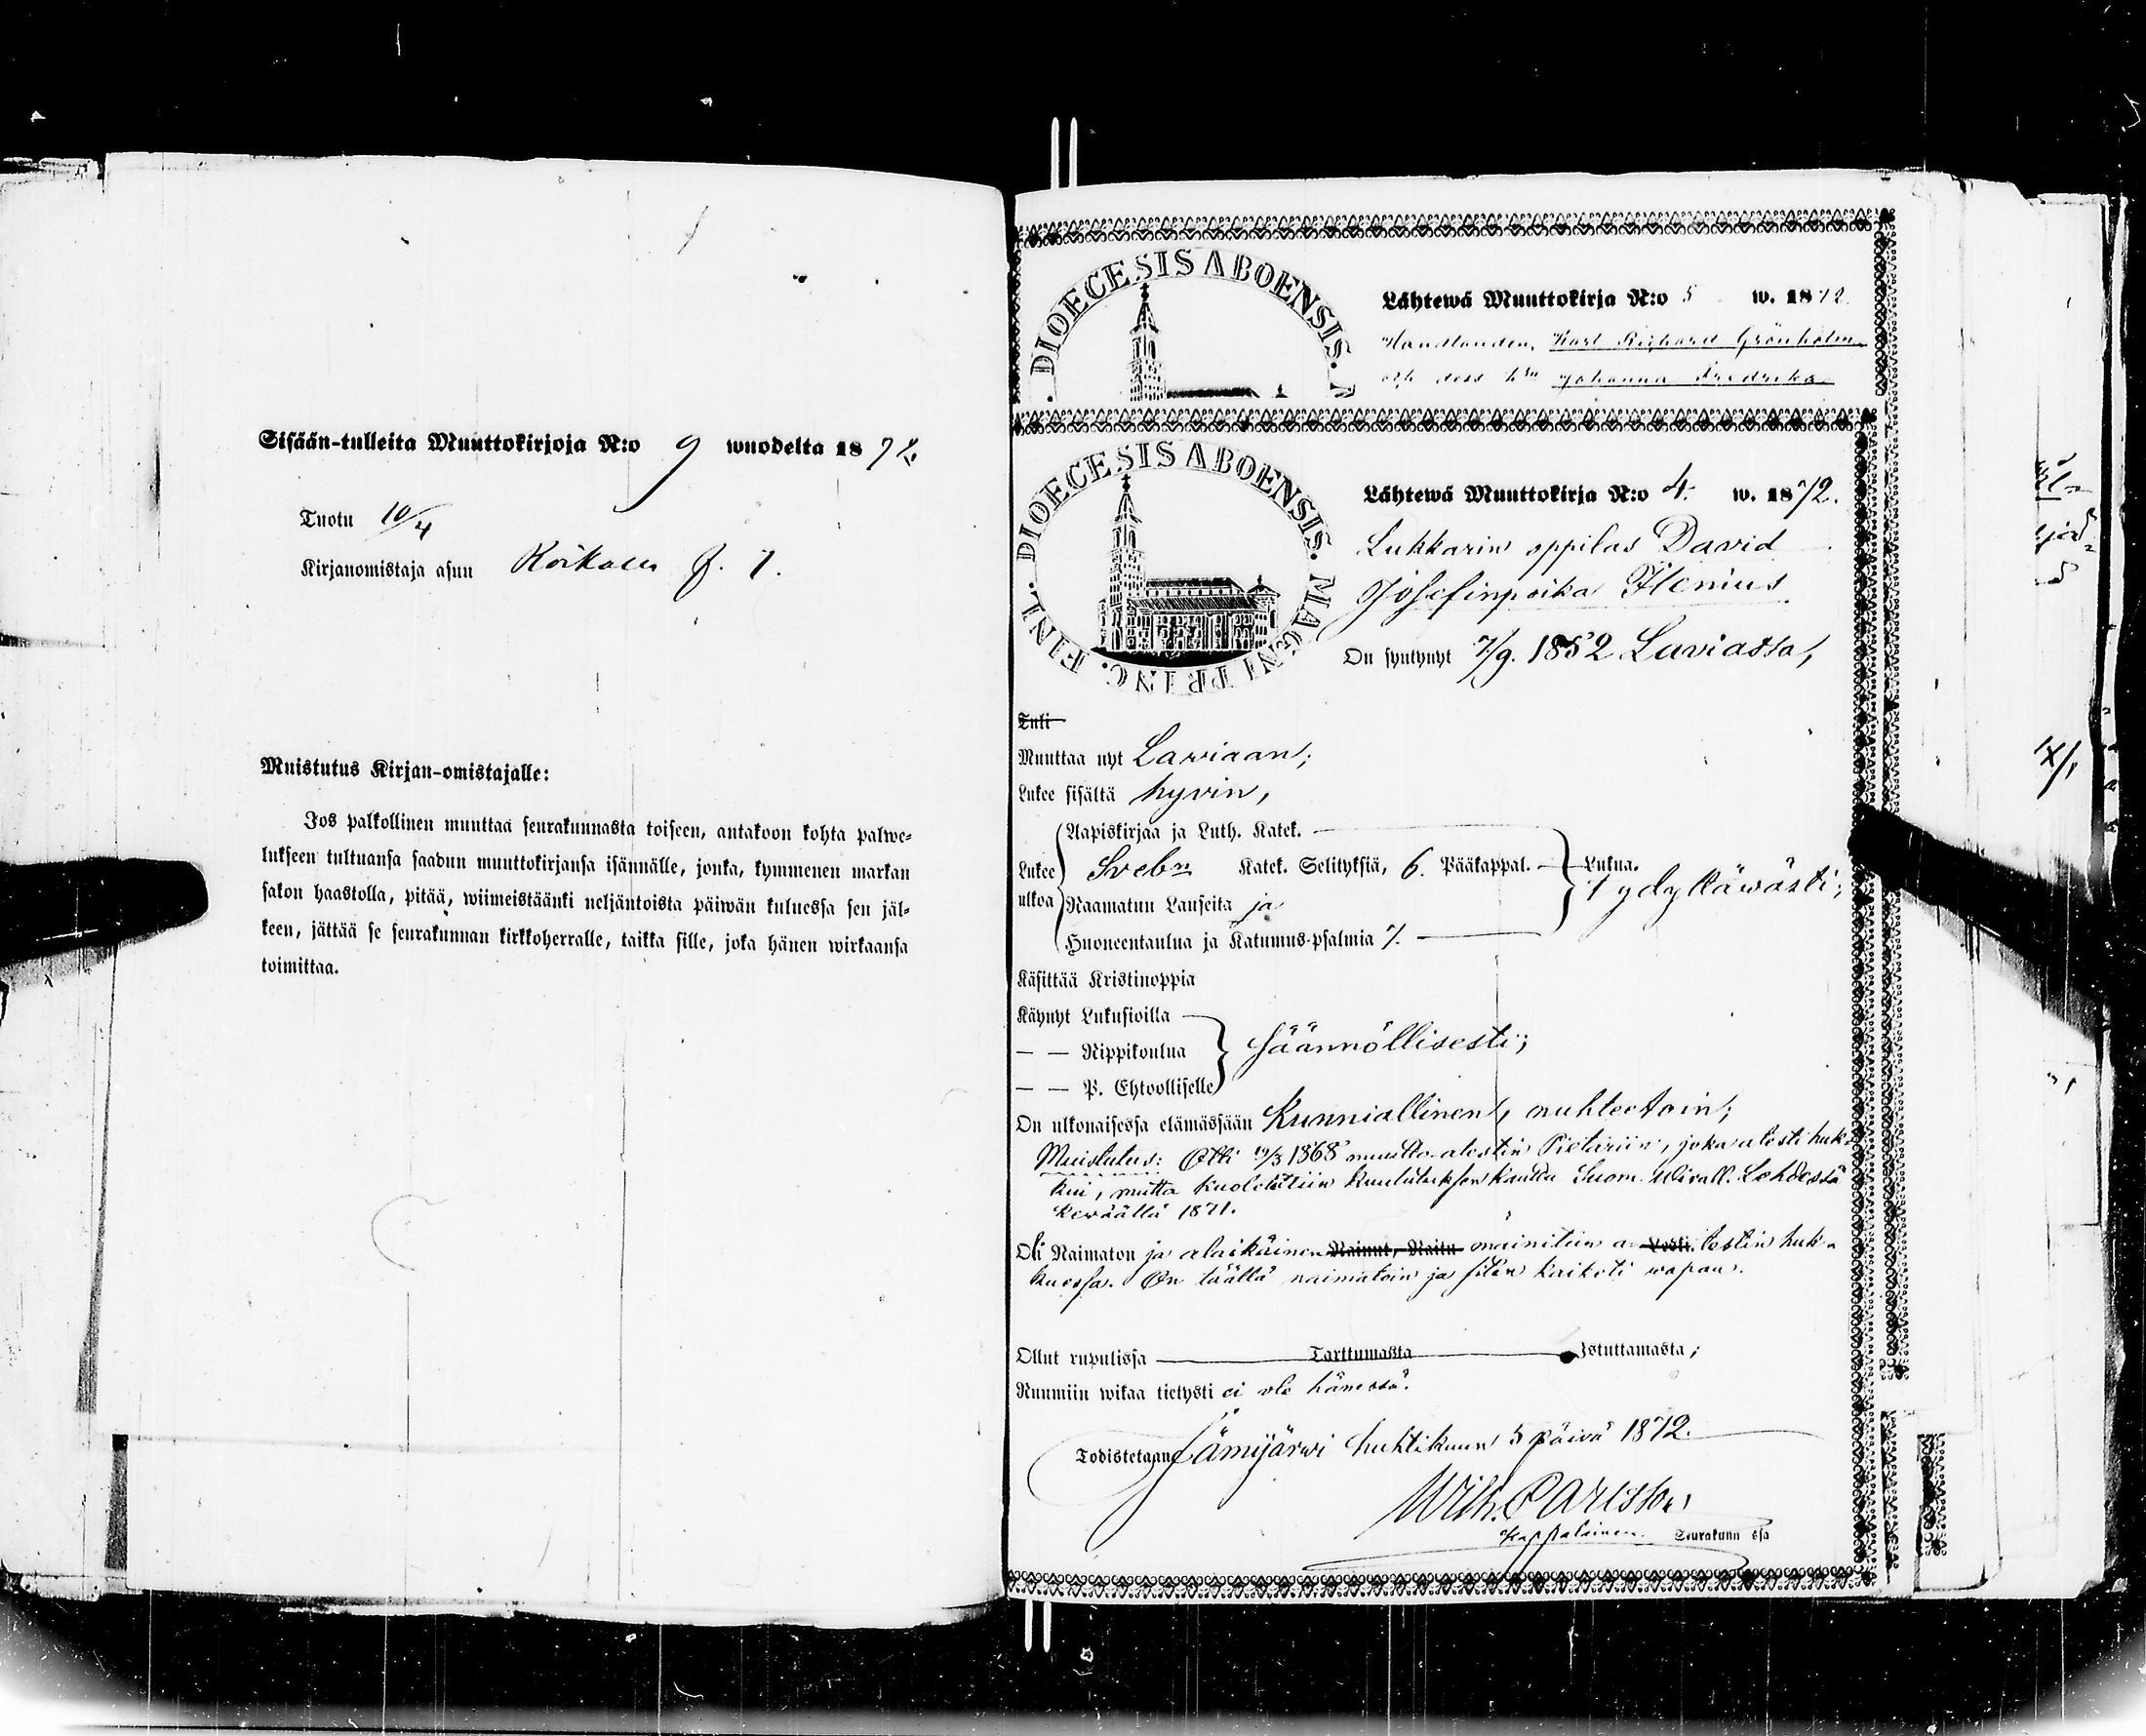 Sisään-tulleita Muuttokirjoja N:o 9 wuodelta 1872.
Tuotu 10/4
Kirjanomistaja asuu
Muistutus Kirjan-omistajalle:
Jos palkollinen muuttaa seurakunnasta toiseen, antakoon kohta palwe-
lukseen tultuansa saadun muuttokirjansa isännälle, jonka, kymmenen markan
sakon haastolla, pitää, wiimeistäänki neljäntoista päiwän kuluessa sen jäl-
keen, jättää se seurakunnan kirkkoherralle, taikka sille, joka hänen wirkaansa
toimittaa.
DIOECESIS ABOENSIS.
Lähtewä Muuttokirja N:o 5 w. 1872
Karl Richard Grönholm
och dess h:u Johanna Fredrika
DIOECESIS ABOENSIS. MAGNI PRINC. FINL.
Lähtewä Muuttokirja N:o 4. w. 1872.
Lukkarin oppilas David
Josefinpoika Ilenius
On syntynyt 7/9. 1852 Luviassa,
Tuli
Muuttaa nyt Laviaan;
Lukee sisältä hyvin,
Aapiskirjaa ja Luth. Katek.
Lukee ulkoa Svebn Katek. Selityksiä, 6. Pääkappal. Lukua.
Raamatun Lauseita ja tydyttäwästi;
Huoneentaulua ja Katumus-psalmia 7.
Käsittää Kristinoppia
Käynyt Lukusioilla
— — Rippikoulua säännöllisesti;
— — P. Ehtoolliselle
On ulkonaisessa elämässään Kunniallinen, nuhteetoin;
Muistutus: Otti 19/3 1868 muutto-atestin Pietariin, joka atesti huk-
kui, mutta kuoletettiin kuulutuksen kautta Suom. Wirall. Lehdessä
kewäällä 1871.
Oli Naimaton ja alaikäinen Nainut, Naitu mainitun a- Leski. testin huk-
kuessa. On täällä naimatoin ja siten kaiketi wapaa.
Ollut rupulissa Tarttumasta Istuttamasta;
Ruumiin wikaa tietysti ei ole hänessä.
Todistetaan Jämijärwi huhtikuun 5 päivä 1872.
Wilh. Carlsson
Kappalainen. Seurakunn ssa